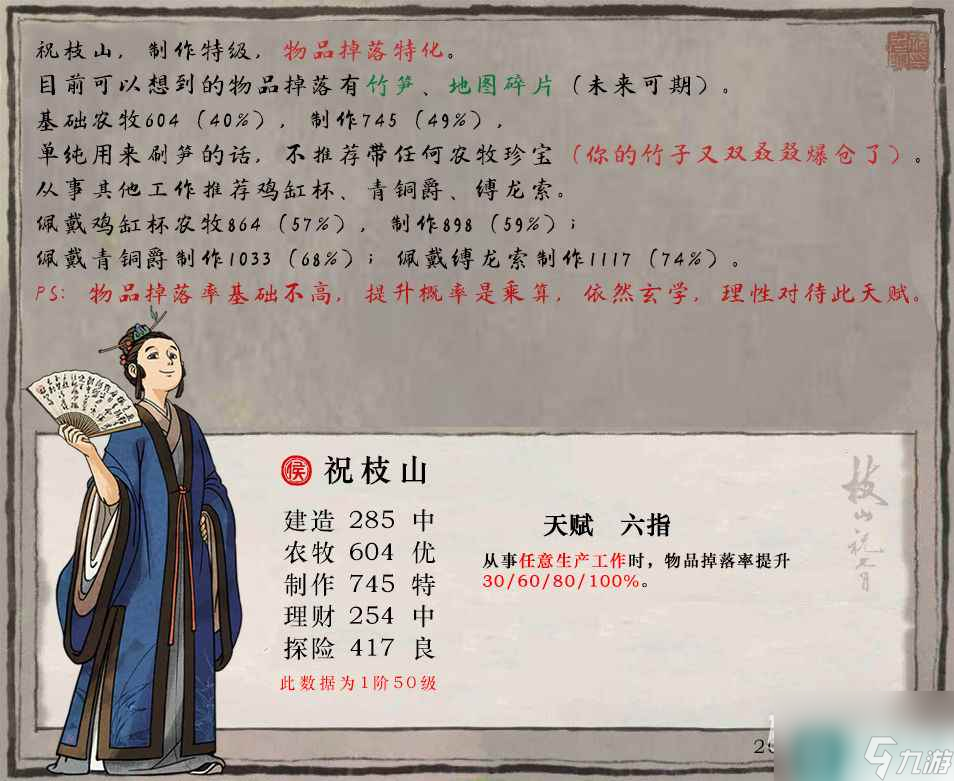 祝枝山，制作特级，物品掉落特化。
目前可以想到的物品掉落有竹笋、地图碎片（未来可期）。
基础农牧604（40%），制作745（49%），
单纯用来刷笋的话，不推荐带任何农牧珍宝（你的竹子又双叒叕爆仓了）。
从事其他工作推荐鸡缸杯、青铜爵、缚龙索。
佩戴鸡缸杯农牧864（57%），制作898（59%）；
佩戴青铜爵制作1033（68%）；佩戴缚龙索制作1117（74%）。
PS：物品掉落率基础不高，提升概率是乘算，依然玄学，理性对待此天赋。
侯 祝枝山
建造 285 中
农牧 604 优
制作 745 特
理财 254 中
探险 417 良
此数据为1阶50级
天赋 六指
从事任意生产工作时，物品掉落率提升
30/60/80/100%。
枝山祝
九游